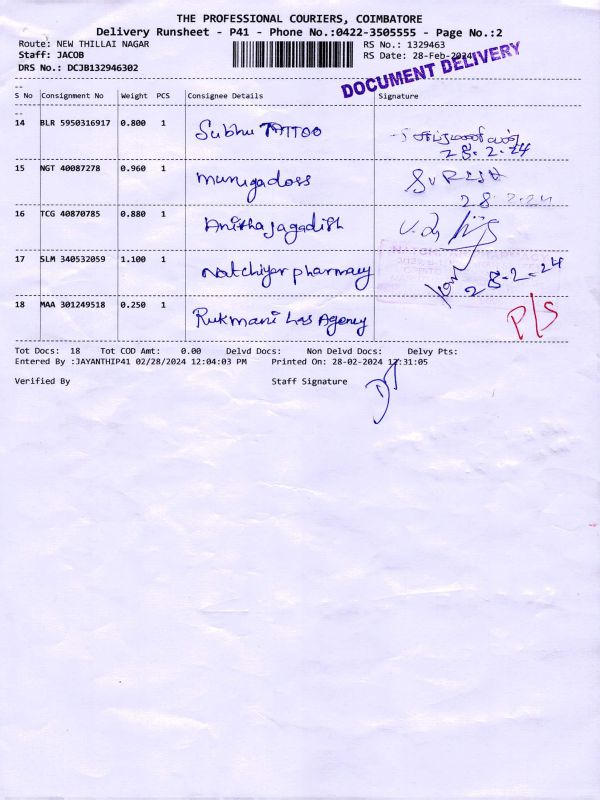 THE PROFESSIONAL COURIERS, COIMBATORE
Delivery Runsheet - P41 - Phone No.:0422-3505555 - Page No.:2
Route: NEW THILLAI NAGAR
RS No.: 1329463
Staff: JACOB
RS Date: 28-Feb-2024
DRS No.: DCJB132946302
DOCUMENT DELIVERY
S No Consignment No Weight PCS Consignee Details Signature
14 BLR 5950316917 0.800 1 Subhu TATTOO
28.2.24
15 NGT 40087278 0.960 1 Murugadoss SURESH
28.2.24
16 TCG 40870785 0.880 1 Anitha Jagadish
17 SLM 340532059 1.100 1 Natchiyar pharmacy 28-2-24
18 MAA 301249518 0.250 1 Rukmani Gas Agency P/S
Tot Docs: 18 Tot COD Amt: 0.00 Delvd Docs: Non Delvd Docs: Delvy Pts:
Entered By :JAYANTHIP41 02/28/2024 12:04:03 PM Printed On: 28-02-2024 12:31:05
Verified By Staff Signature